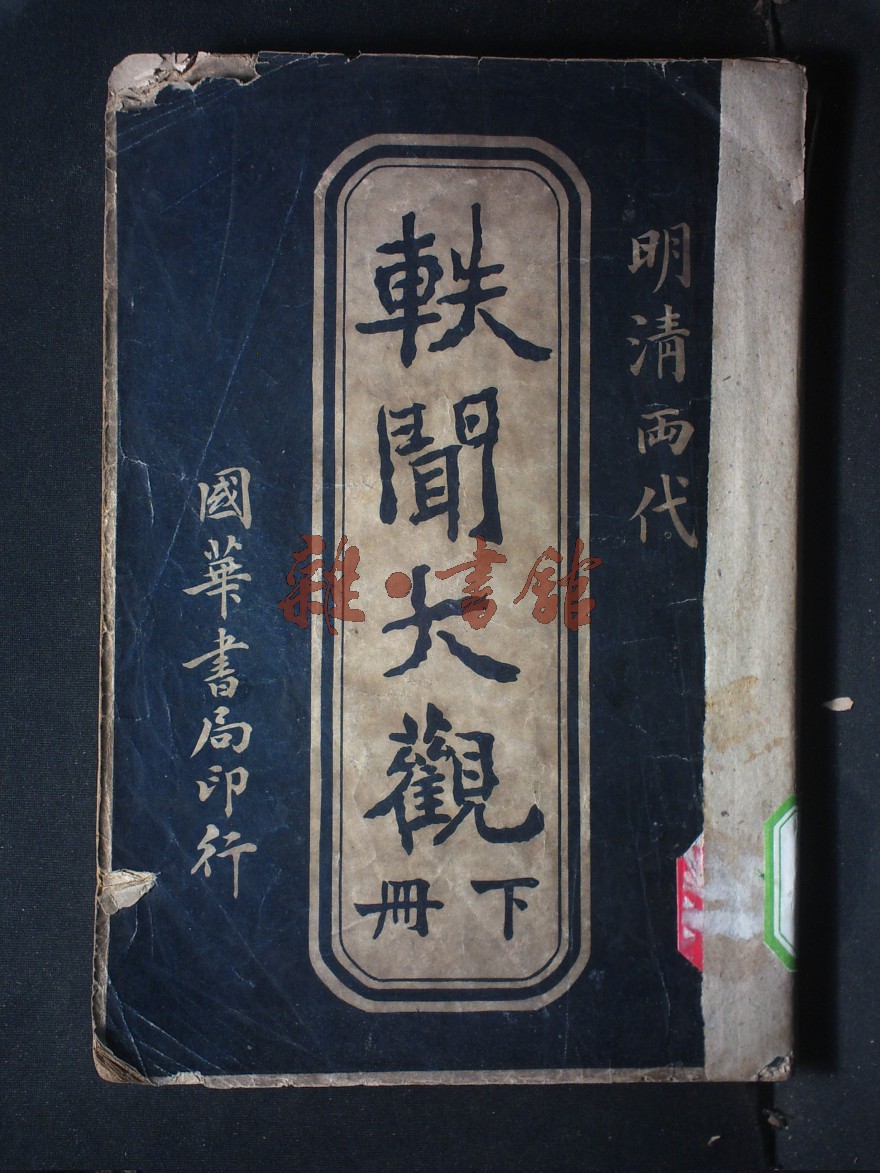 明清両代
軼聞大觀
下冊
國華書局印行
雜·書館